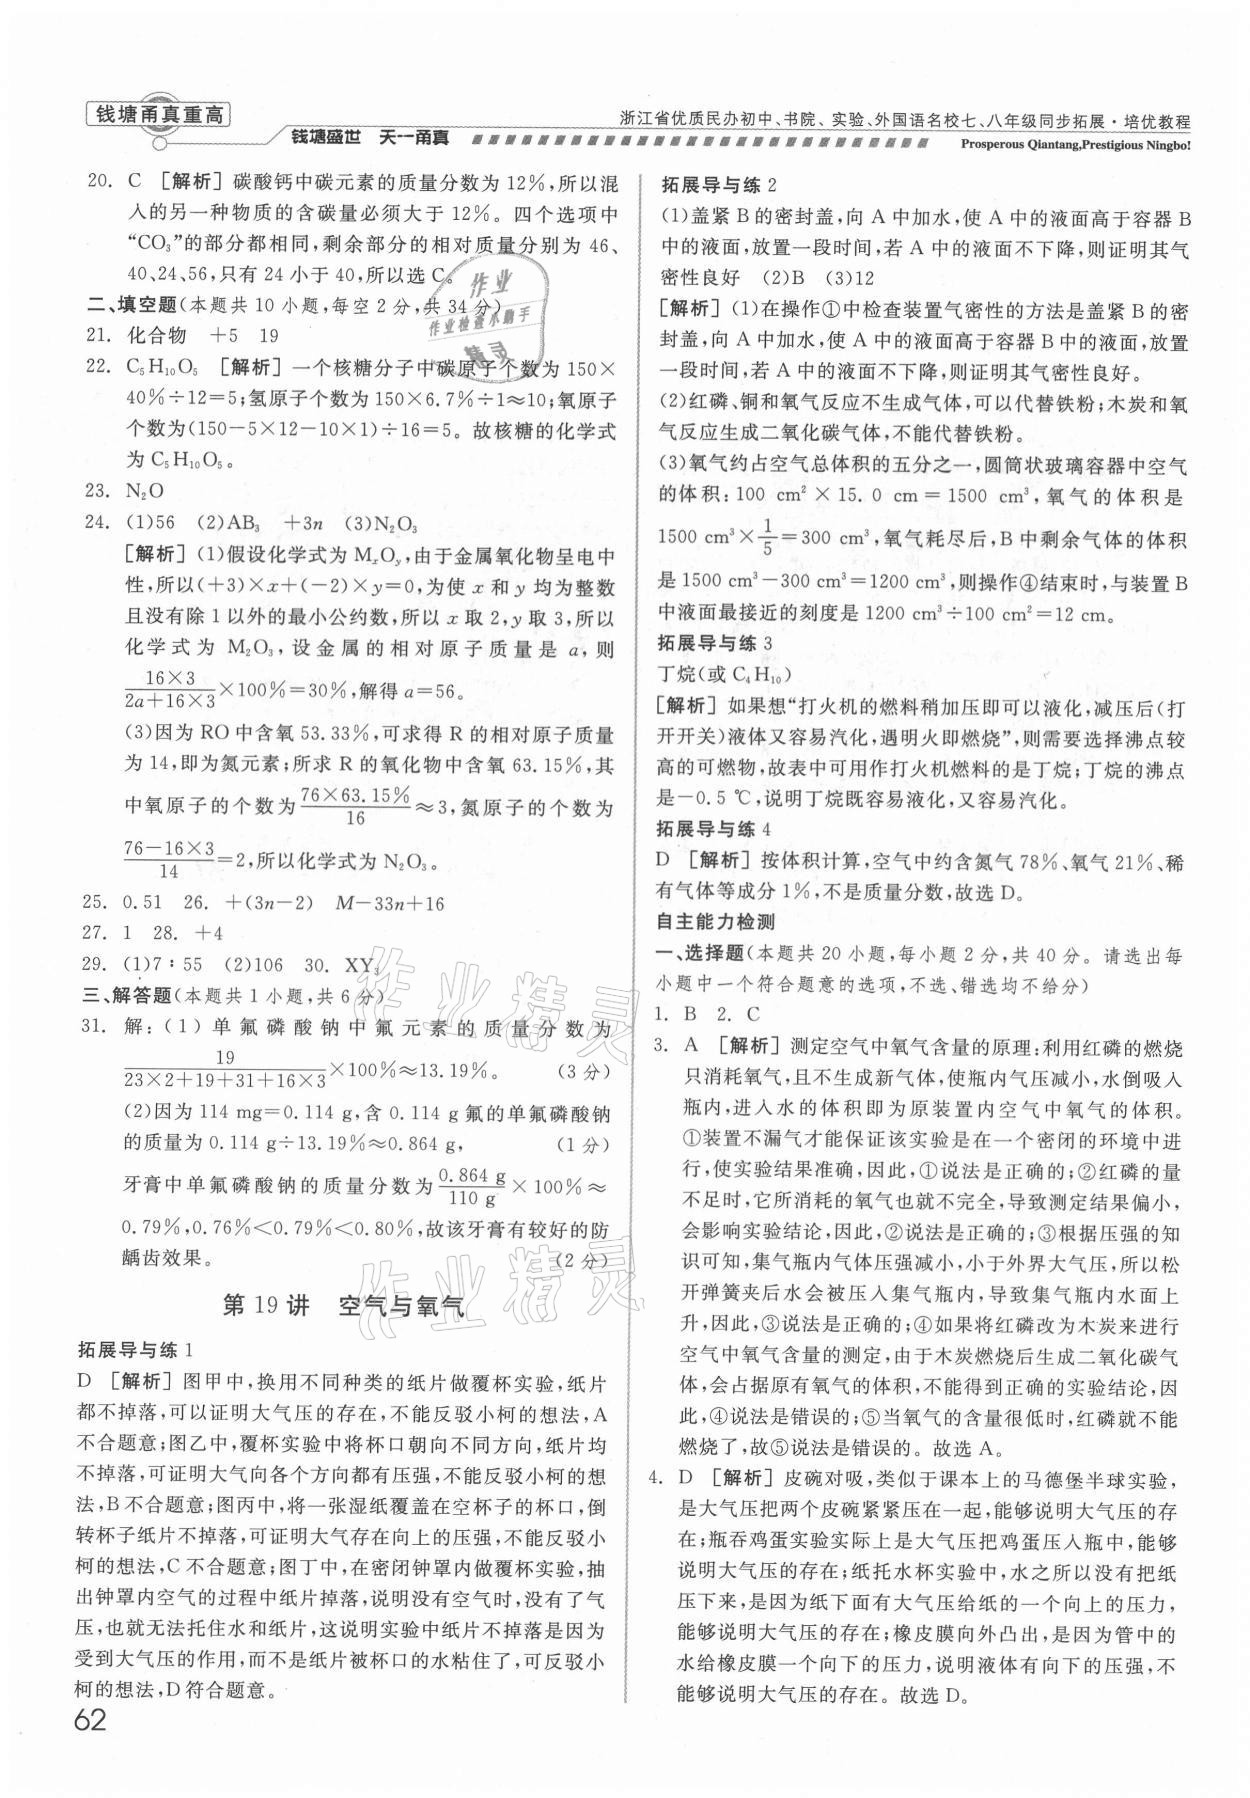 钱塘甬真重高
钱塘盛世 天一甬真
浙江省优质民办初中、书院、实验、外国语名校七、八年级同步拓展·培优教程
Prosperous Qiantang,Prestigious Ningbo!
20. C [解析]碳酸钙中碳元素的质量分数为12%,所以混
入的另一种物质的含碳量必须大于12%。四个选项中
“CO₃”的部分都相同,剩余部分的相对质量分别为46、
40、24、56,只有24小于40,所以选C。
二、填空题(本题共10小题,每空2分,共34分)
21. 化合物 +5 19
22. C₅H₁₀O₅ [解析]一个核糖分子中碳原子个数为150×
40%÷12=5;氢原子个数为150×6.7%÷1≈10;氧原子
个数为(150-5×12-10×1)÷16=5。故核糖的化学式
为C₅H₁₀O₅。
23. N₂O
24. (1)56 (2)AB₃ +3n (3)N₂O₃
[解析](1)假设化学式为MₓOᵧ,由于金属氧化物呈电中
性,所以(+3)×x+(-2)×y=0,为使x和y均为整数
且没有除1以外的最小公约数,所以x取2,y取3,所以
化学式为M₂O₃,设金属的相对原子质量是a,则
16×3/(2a+16×3)×100%=30%,解得a=56。
(3)因为RO中含氧53.33%,可求得R的相对原子质量
为14,即为氮元素;所求R的氧化物中含氧63.15%,其
中氧原子的个数为76×63.15%/16≈3,氮原子的个数为
(76-16×3)/14=2,所以化学式为N₂O₃。
25. 0.51 26. +(3n-2) M-33n+16
27. 1 28. +4
29. (1)7∶55 (2)106 30. XY₃
三、解答题(本题共1小题,共6分)
31. 解:(1)单氟磷酸钠中氟元素的质量分数为
19/(23×2+19+31+16×3)×100%≈13.19%。 (3分)
(2)因为114 mg=0.114 g,含0.114 g氟的单氟磷酸钠
的质量为0.114 g÷13.19%≈0.864 g, (1分)
牙膏中单氟磷酸钠的质量分数为0.864 g/110 g×100%≈
0.79%,0.76%<0.79%<0.80%,故该牙膏有较好的防
龋齿效果。 (2分)
第19讲 空气与氧气
拓展导与练1
D [解析]图甲中,换用不同种类的纸片做覆杯实验,纸片
都不掉落,可以证明大气压的存在,不能反驳小柯的想法,A
不合题意;图乙中,覆杯实验中将杯口朝向不同方向,纸片均
不掉落,可证明大气向各个方向都有压强,不能反驳小柯的想
法,B不合题意;图丙中,将一张湿纸覆盖在空杯子的杯口,倒
转杯子纸片不掉落,可证明大气存在向上的压强,不能反驳小
柯的想法,C不合题意;图丁中,在密闭钟罩内做覆杯实验,抽
出钟罩内空气的过程中纸片掉落,说明没有空气时,没有了气
压,也就无法托住水和纸片,这说明实验中纸片不掉落是因为
受到大气压的作用,而不是纸片被杯口的水粘住了,可反驳小
柯的想法,D符合题意。
62
拓展导与练2
(1)盖紧B的密封盖,向A中加水,使A中的液面高于容器B
中的液面,放置一段时间,若A中的液面不下降,则证明其气
密性良好 (2)B (3)12
[解析](1)在操作①中检查装置气密性的方法是盖紧B的密
封盖,向A中加水,使A中的液面高于容器B中的液面,放置
一段时间,若A中的液面不下降,则证明其气密性良好。
(2)红磷、铜和氧气反应不生成气体,可以代替铁粉;木炭和氧
气反应生成二氧化碳气体,不能代替铁粉。
(3)氧气约占空气总体积的五分之一,圆筒状玻璃容器中空气
的体积:100 cm²×15.0 cm=1500 cm³,氧气的体积是
1500 cm³×1/5=300 cm³,氧气耗尽后,B中剩余气体的体积
是1500 cm³-300 cm³=1200 cm³,则操作④结束时,与装置B
中液面最接近的刻度是1200 cm³÷100 cm²=12 cm。
拓展导与练3
丁烷(或C₄H₁₀)
[解析]如果想“打火机的燃料稍加压即可以液化,减压后(打
开开关)液体又容易汽化,遇明火即燃烧”,则需要选择沸点较
高的可燃物,故表中可用作打火机燃料的是丁烷;丁烷的沸点
是-0.5 ℃,说明丁烷既容易液化,又容易汽化。
拓展导与练4
D [解析]按体积计算,空气中约含氮气78%、氧气21%、稀
有气体等成分1%,不是质量分数,故选D。
自主能力检测
一、选择题(本题共20小题,每小题2分,共40分。请选出每
小题中一个符合题意的选项,不选、错选均不给分)
1. B 2. C
3. A [解析]测定空气中氧气含量的原理:利用红磷的燃烧
只消耗氧气,且不生成新气体,使瓶内气压减小,水倒吸入
瓶内,进入水的体积即为原装置内空气中氧气的体积。
①装置不漏气才能保证该实验是在一个密闭的环境中进
行,使实验结果准确,因此,①说法是正确的;②红磷的量
不足时,它所消耗的氧气也就不完全,导致测定结果偏小,
会影响实验结论,因此,②说法是正确的;③根据压强的知
识可知,集气瓶内气体压强减小,小于外界大气压,所以松
开弹簧夹后水会被压入集气瓶内,导致集气瓶内水面上
升,因此,③说法是正确的;④如果将红磷改为木炭来进行
空气中氧气含量的测定,由于木炭燃烧后生成二氧化碳气
体,会占据原有氧气的体积,不能得到正确的实验结论,因
此,④说法是错误的;⑤当氧气的含量很低时,红磷就不能
燃烧了,故⑤说法是错误的。故选A。
4. D [解析]皮碗对吸,类似于课本上的马德堡半球实验,
是大气压把两个皮碗紧紧压在一起,能够说明大气压的存
在;瓶吞鸡蛋实验实际上是大气压把鸡蛋压入瓶中,能够
说明大气压的存在;纸托水杯实验中,水之所以没有把纸
压下来,是因为纸下面有大气压给纸的一个向上的压力,
能够说明大气压的存在;橡皮膜向外凸出,是因为管中的
水给橡皮膜一个向下的压力,说明液体有向下的压强,不
能够说明大气压的存在。故选D。
作业
作业检查小助手
精灵
作业精灵
作业精灵